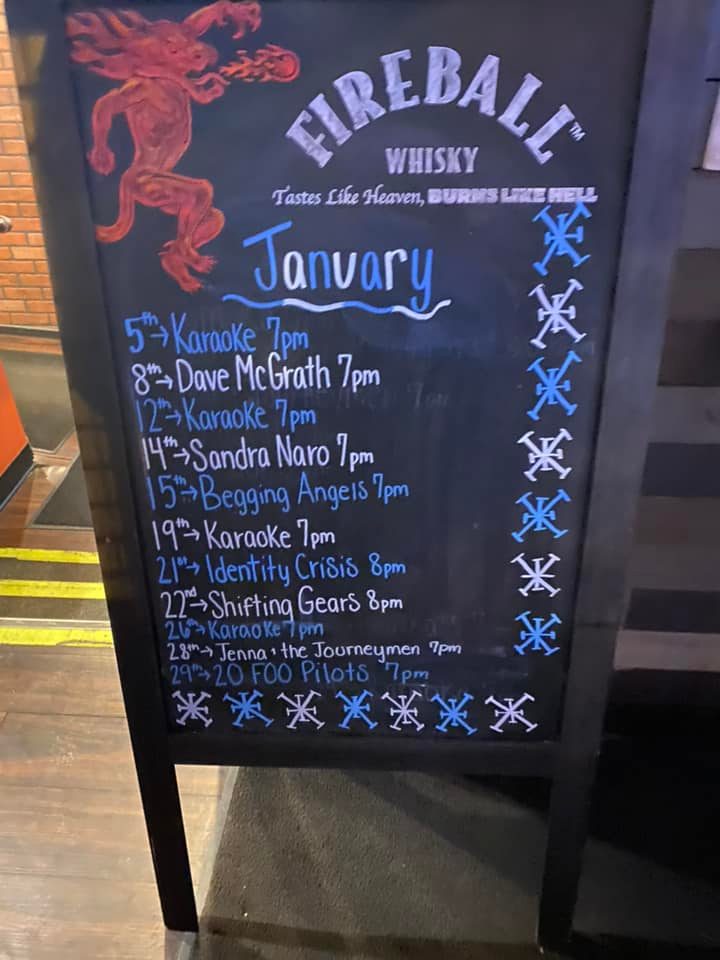 FIREBALL™
WHISKY
Tastes Like Heaven, BURNS LIKE HELL
January
5th→Karaoke 7pm
8th→Dave McGrath 7pm
12th→Karaoke 7pm
14th→Sandra Naro 7pm
15th→Begging Angels 7pm
19th→Karaoke 7pm
21st→Identity Crisis 8pm
22nd→Shifting Gears 8pm
26th→Karaoke 7pm
28th→Jenna & the Journeymen 7pm
29th→20 FOO Pilots 7pm